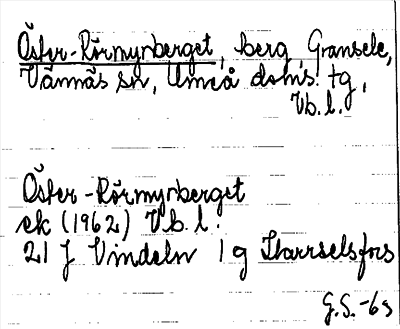 Öster-Rörmyrberget, berg, Gransele,
Vännäs sn, Umeå doms. tg,
Vb. l.
Öster-Rörmyrberget
ek (1962) Vb. l.
21 J Vindeln 1 g Harrselsfors
G.S. -63